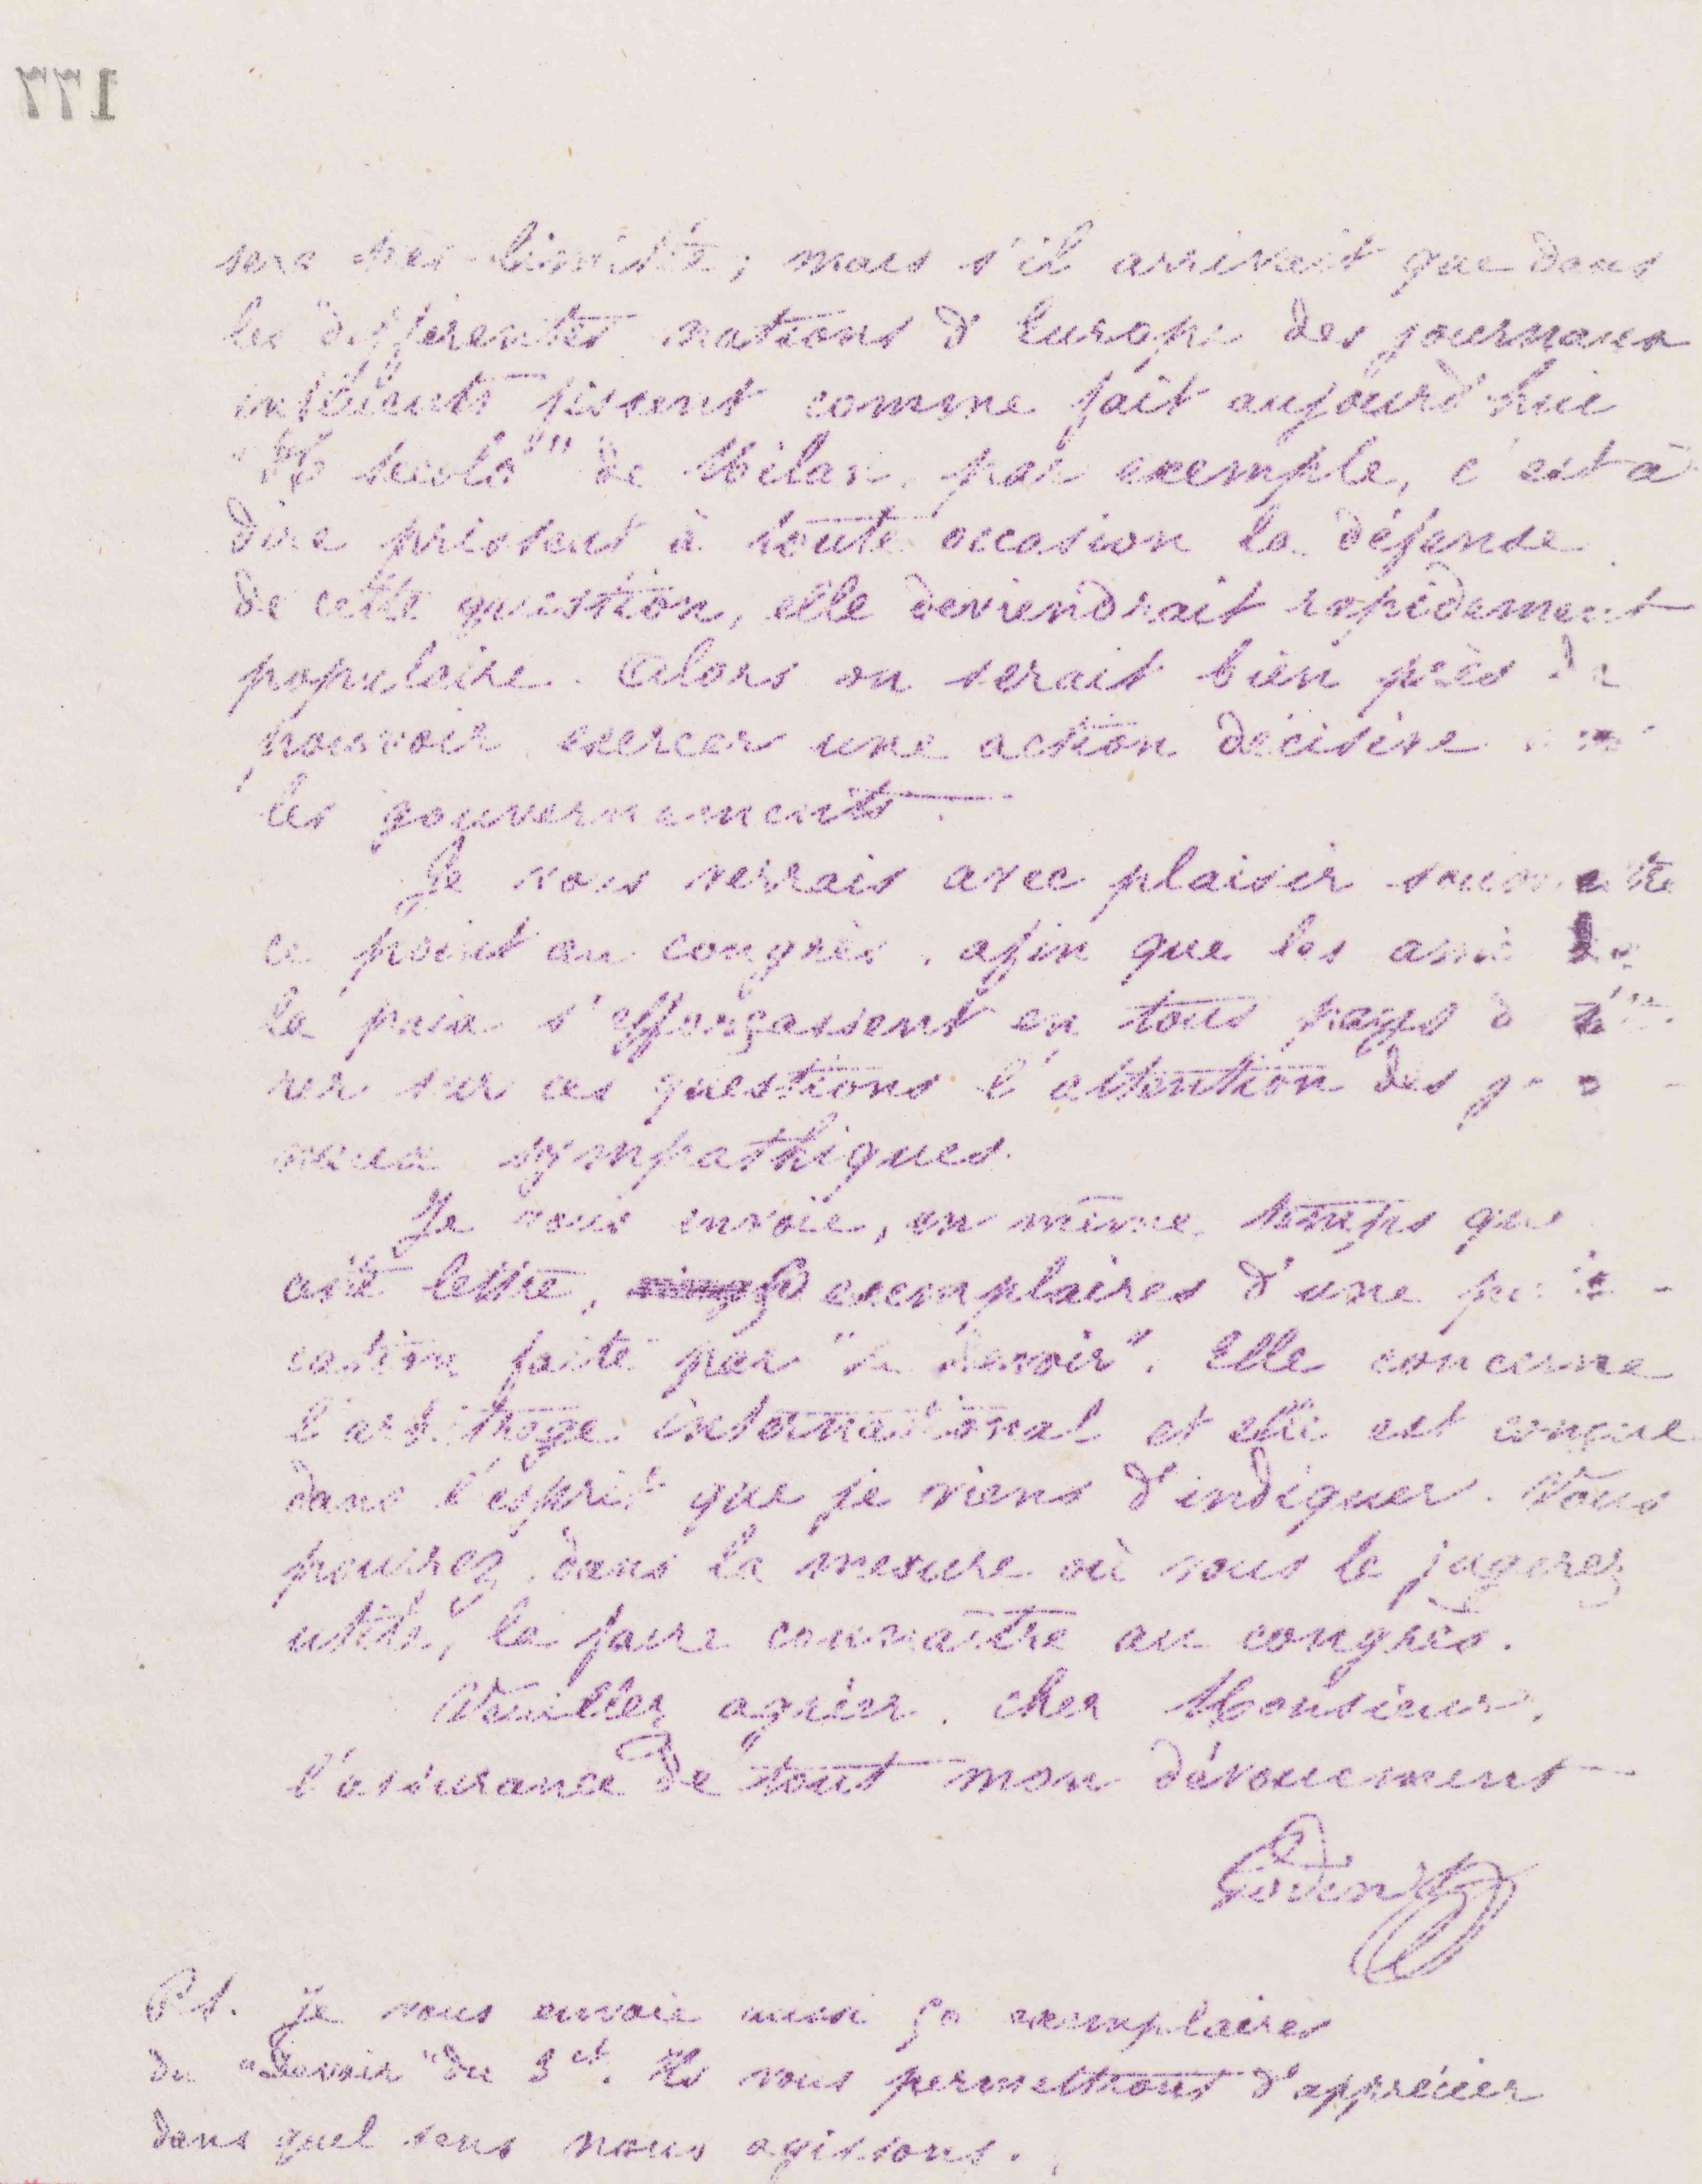 177
sera très limitée; mais s'il arrivait que dans
les différentes nations d'Europe des journaux
influents fissent comme fait aujourd'hui
"Il Secolo" de Milan, par exemple, c'est à
dire prissent à toute occasion la défense
de cette question, elle deviendrait rapidement
populaire. Alors on serait bien près de
pouvoir exercer une action décisive
les gouvernements.
Je vous verrais avec plaisir soumettre
ce point au congrès, afin que les amis de
la paix s'efforçassent en tous pays d'
rer sur ces questions l'attention des
naux sympathiques.
Je vous envoie, en même temps que
cette lettre, 50 exemplaires d'une
cation faite par "Le Devoir". Elle concerne
l'arbitrage international et elle est conçue
dans l'esprit que je viens d'indiquer. Vous
pourrez, dans la mesure où vous le jugerez
utile, la faire connaître au congrès.
Veuillez agréer, cher Monsieur,
l'assurance de tout mon dévouement
Godin
P.S. Je vous envoie aussi 50 exemplaires
du "Devoir" du 3 ct. Ils vous permettront d'apprécier
dans quel sens nous agissons.